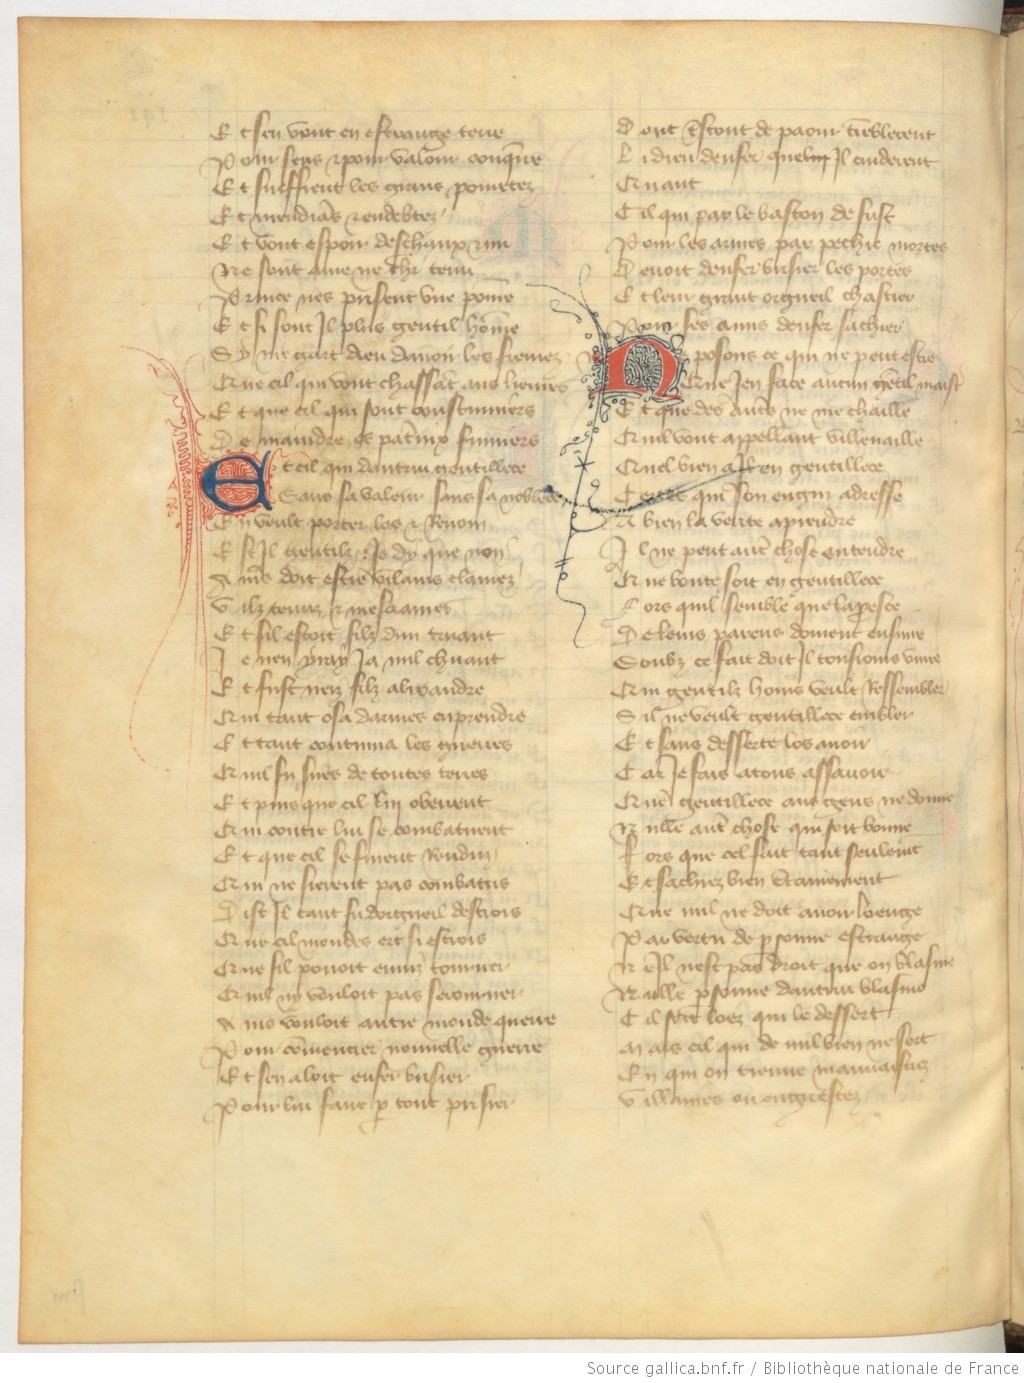 Et sen vont en estrange terre
Pour sens et pour valour conquerre
Et sueffrent les grans pouretez
Et mendians et endebtez
Et vont espoir deschaux et nu
Ne sont ame ne chier tenu
Prince nes prisent vne pome
Et si sont Il plus gentil home
Sy me gart dieu dauoir les fieures
Que cil qui vont chassant aus lieures
Et que cil qui sont coustumiers
De maindre es paternix fumiers
Et cil qui dautrui gentillece
Sans sa valeur sans sa noblece
En veult porter los et Renom
Est Il gentilz Je dy que non
Ains doit estre vilains clamez
Vilz tenuz et mesames
Et sil estoit filz dun truant
Je nen Ja nul chuant
Et fust neiz filz alixandre
Qui tant osa darmes enprendre
Et tant continua les guerres
Quil fu sires de toutes terres
Et puis que cil lui obeirent
Qui contre lui se combatirent
Et que cil se furent Renduz
Qui ne sierent pas combatus
Dist Il tant fu dorgueil destrois
Que cil mondes ert si estrois
Que sil pouoit enuis tourner
Quil ny vouloit pas seiourner
Ains vouloit autre monde querre
Pour comencier nouuelle guerre
Et sen aloit enfer brisier
Pour lui faire par tout prisier
Dont trestout de paour tremblerent
Li dieu denfer quelui Il cuiderent
Quant
Cil qui par le baston de fust
Pour les armes par pechie mortes
Deuoit denfer brisier les portes
Et leur grant orgueil chastier
Pour ses amis denfer sachier
Mais posons ce qui ne peut estre
Que Jen face aucun gentil naist
Et que des autres ne me chaille
Quil vont appellant villenaille
Quel bien a Il en gentillece
Certes qui son engin adresse
A bien la verite aprendre
Il ne peut autre chose entendre
Que bonte soit en gentillece
Fors quil semble que la proesce
De leurs parens doiuent ensiure
Soubz ce fait doit Il tousiours viure
Qui gentilz homs veult Ressembler
Sil ne veult gentillece embler
Et sans desserte los auoir
Car Je fais a tous assauoir
Que gentillece aux gens ne donne
Nulle autre chose qui soit bonne
Fors que cel fait tant seulement
Et sachiez bien vraiement
Que nul ne doit auoir loenge
Par vertu de personne estrange
Ne Il nest pas droit que on blasme
Nulle personne dautrui blasme
Cil soit loez qui le dessert
Mais cil qui de nul bien ne sert
En qui on treuue mauuaistiez
Villanies ou engrestez